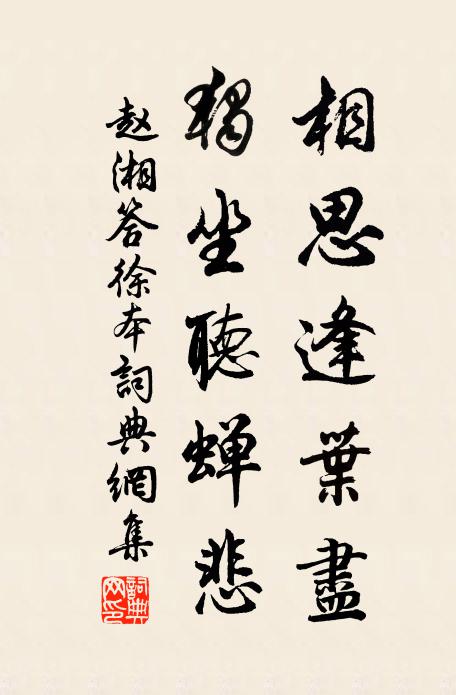 相思逢葉盡
獨坐聽蟬悲
赵湘答徐本詞典網集
詞典
网印